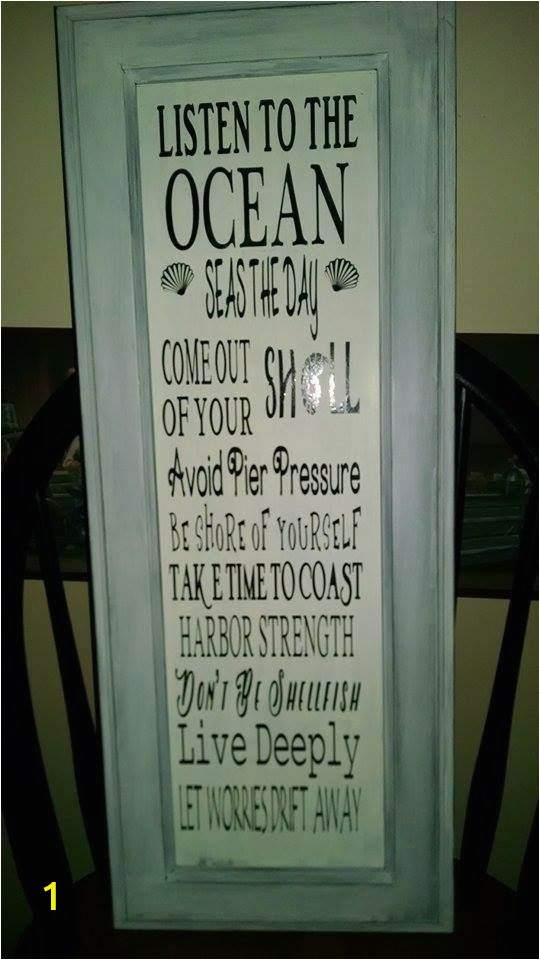 LISTEN TO THE
OCEAN
SEAS THE DAY
COME OUT
OF YOUR
SHELL
Avoid Pier Pressure
BE SHORE OF YOURSELF
TAKE TIME TO COAST
HARBOR STRENGTH
DON'T BE SHELLFISH
Live Deeply
LET WORRIES DRIFT AWAY
1